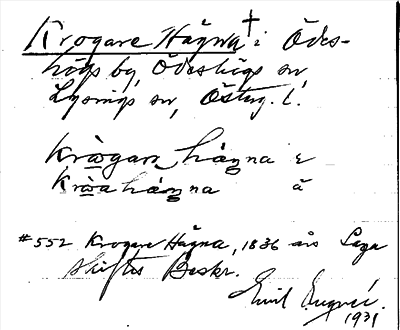 Krogare Hägna † i Ödes-
högs by, Ödeshögs sn,
Lysings sn, Österg. l.
Kròͅgarͅ hágna ε
Kròͅa hágna å
#552 Krogare Hägna, 1836 års Laga
skiftes Beskr.
Emil
1931